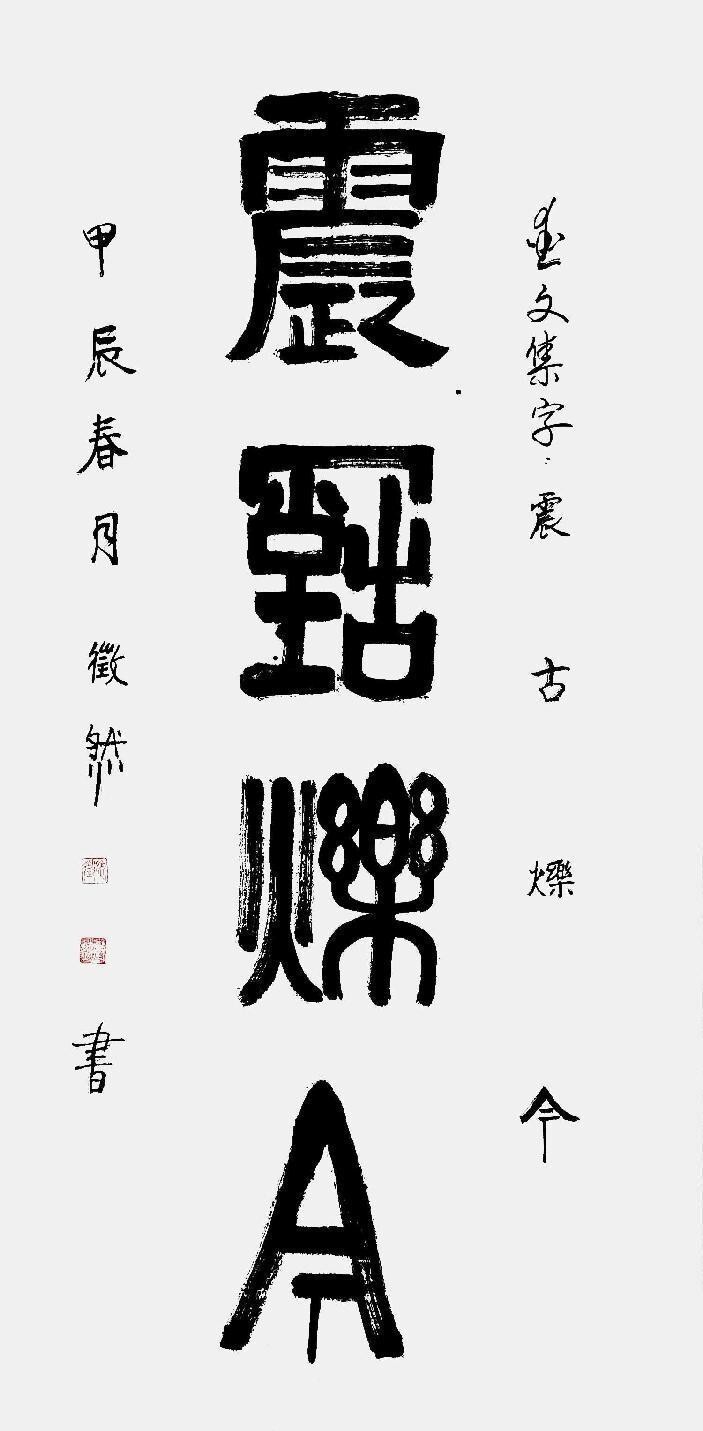 金文集字：震古爍今
震古爍今
甲辰春月徵然書